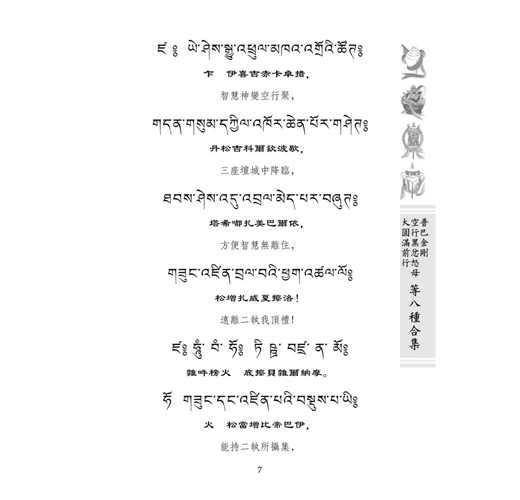 ཛ༔ ཡེ་ཤེས་སྒྱུ་འཕྲུལ་མཁའ་འགྲོའི་ཚོན༔
乍 伊喜吉赤卡卓措，
智慧神變空行聚，
གདན་གསུམ་དཀྱིལ་འཁོར་ཆེན་པོར་གཤེན༔
丹松吉科爾欽波歇，
三座壇城中降臨，
ཐབས་ཤེས་འདུ་འབྲལ་མེད་པར་བཞུན༔
塔希嘟扎美巴爾依，
方便智慧無離住，
གཟུང་འཛིན་བྲལ་བའི་ཕྱག་འཚལ་ལོ༔
松增扎威夏擦洛！
遠離二執我頂禮！
ཛ༔ ཧཱུྃ༔ བཾ་ ཧོ༔ ཏི་ བཛྲ་ ན་ མོ༔
雜吽榜火 底擦貝雜爾納摩。
ཧོ གཟུང་དང་འཛིན་པའི་བསྡུས་པ་ཡི༔
火 松當增比帝巴伊，
能持二執所攝集，
7
普巴金剛
空行黑忿怒母
大圓滿前行
等八種合集